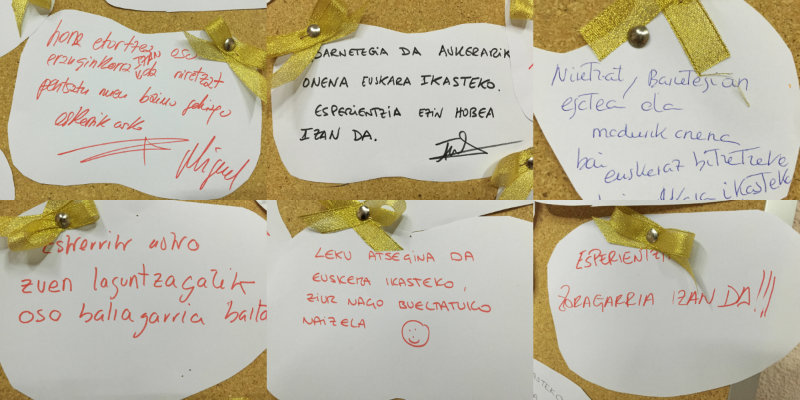 hona etortzea oso
eraginkorra IZAN da niretzat
pentsatu nuen baino gehiago
eskerrik asko
Miguel
BARNETEGIA DA AUKERARIK
ONENA EUSKARA IKASTEKO.
ESPERIENTZIA EZIN HOBEA
IZAN DA.
Niretzat, Barnetegian
egotea da
modurik onena
bai euskeraz bizitzeko
ikasteko
eskerrik asko
zuen laguntzagatik
oso baliagarria baita
LEKU ATSEGINA DA
EUSKERA IKASTEKO,
ZIUR NAGO BUELTATUKO
NAIZELA
ESPERIENTZIA
ZORAGARRIA IZAN DA!!!